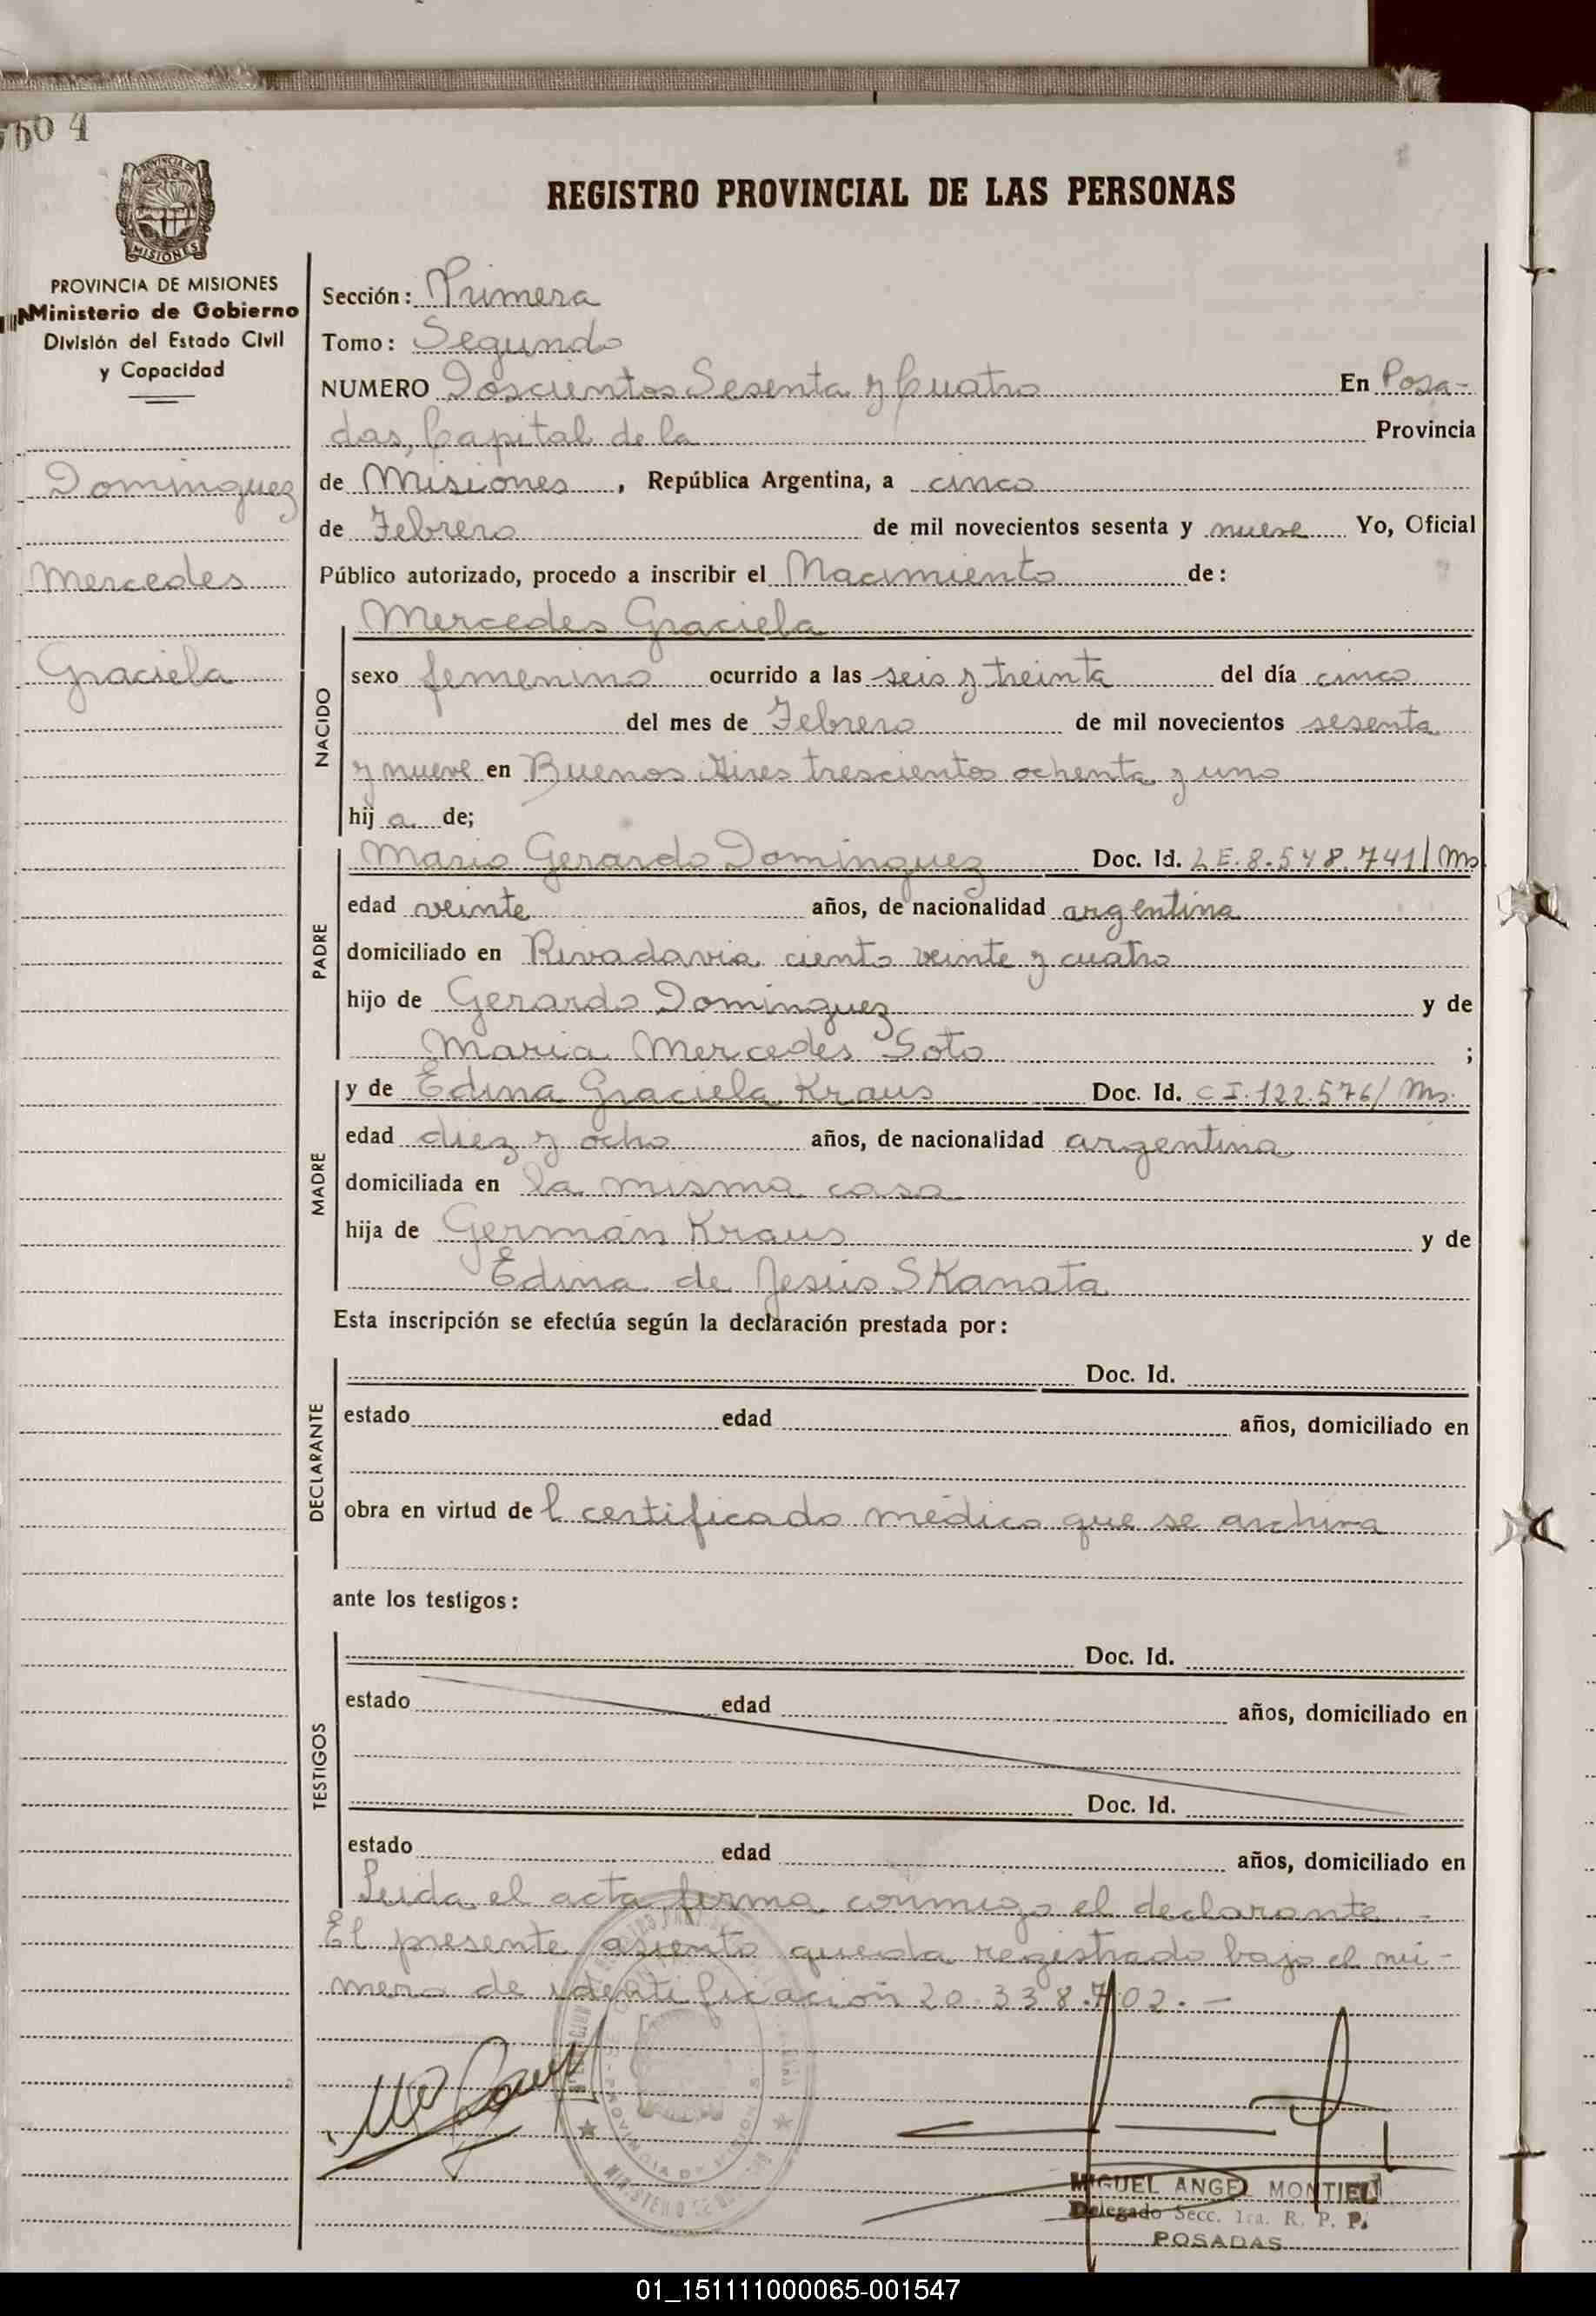 604
PROVINCIA DE
MISIONES
REGISTRO PROVINCIAL DE LAS PERSONAS
PROVINCIA DE MISIONES
Ministerio de Gobierno
División del Estado Civil
y Capacidad
Dominguez
Mercedes
Graciela
Sección: Primera
Tomo: Segundo
NUMERO Doscientos Sesenta y Cuatro En Posa-
das, Capital de la Provincia
de Misiones, República Argentina, a cinco
de Febrero de mil novecientos sesenta y nueve Yo, Oficial
Público autorizado, procedo a inscribir el Nacimiento de:
Mercedes Graciela
NACIDO
sexo femenino ocurrido a las seis y treinta del día cinco
del mes de Febrero de mil novecientos sesenta
y nueve en Buenos Aires trescientos ochenta y uno
hij a de;
PADRE
Mario Gerardo Dominguez Doc. Id. LE.8.548.741/Ms
edad veinte años, de nacionalidad argentina
domiciliado en Rivadavia ciento veinte y cuatro
hijo de Gerardo Dominguez y de
Maria Mercedes Soto ;
MADRE
y de Edina Graciela Kraus Doc. Id. CI.122.576/Ms.
edad diez y ocho años, de nacionalidad argentina
domiciliada en la misma casa
hija de Germán Kraus y de
Edina de Jesús SKanata
Esta inscripción se efectúa según la declaración prestada por:
DECLARANTE
Doc. Id.
estado edad años, domiciliado en
obra en virtud de l certificado médico que se archiva
ante los testigos:
TESTIGOS
Doc. Id.
estado edad años, domiciliado en
Doc. Id.
estado edad años, domiciliado en
Leida el acta firma conmigo el declarante.-
El presente asiento queda registrado bajo el nú-
mero de identificación 20.338.702.-
MIGUEL ANGEL MONTIEL
Delegado Secc. 1ra. R. P. P.
POSADAS
01_151111000065-001547